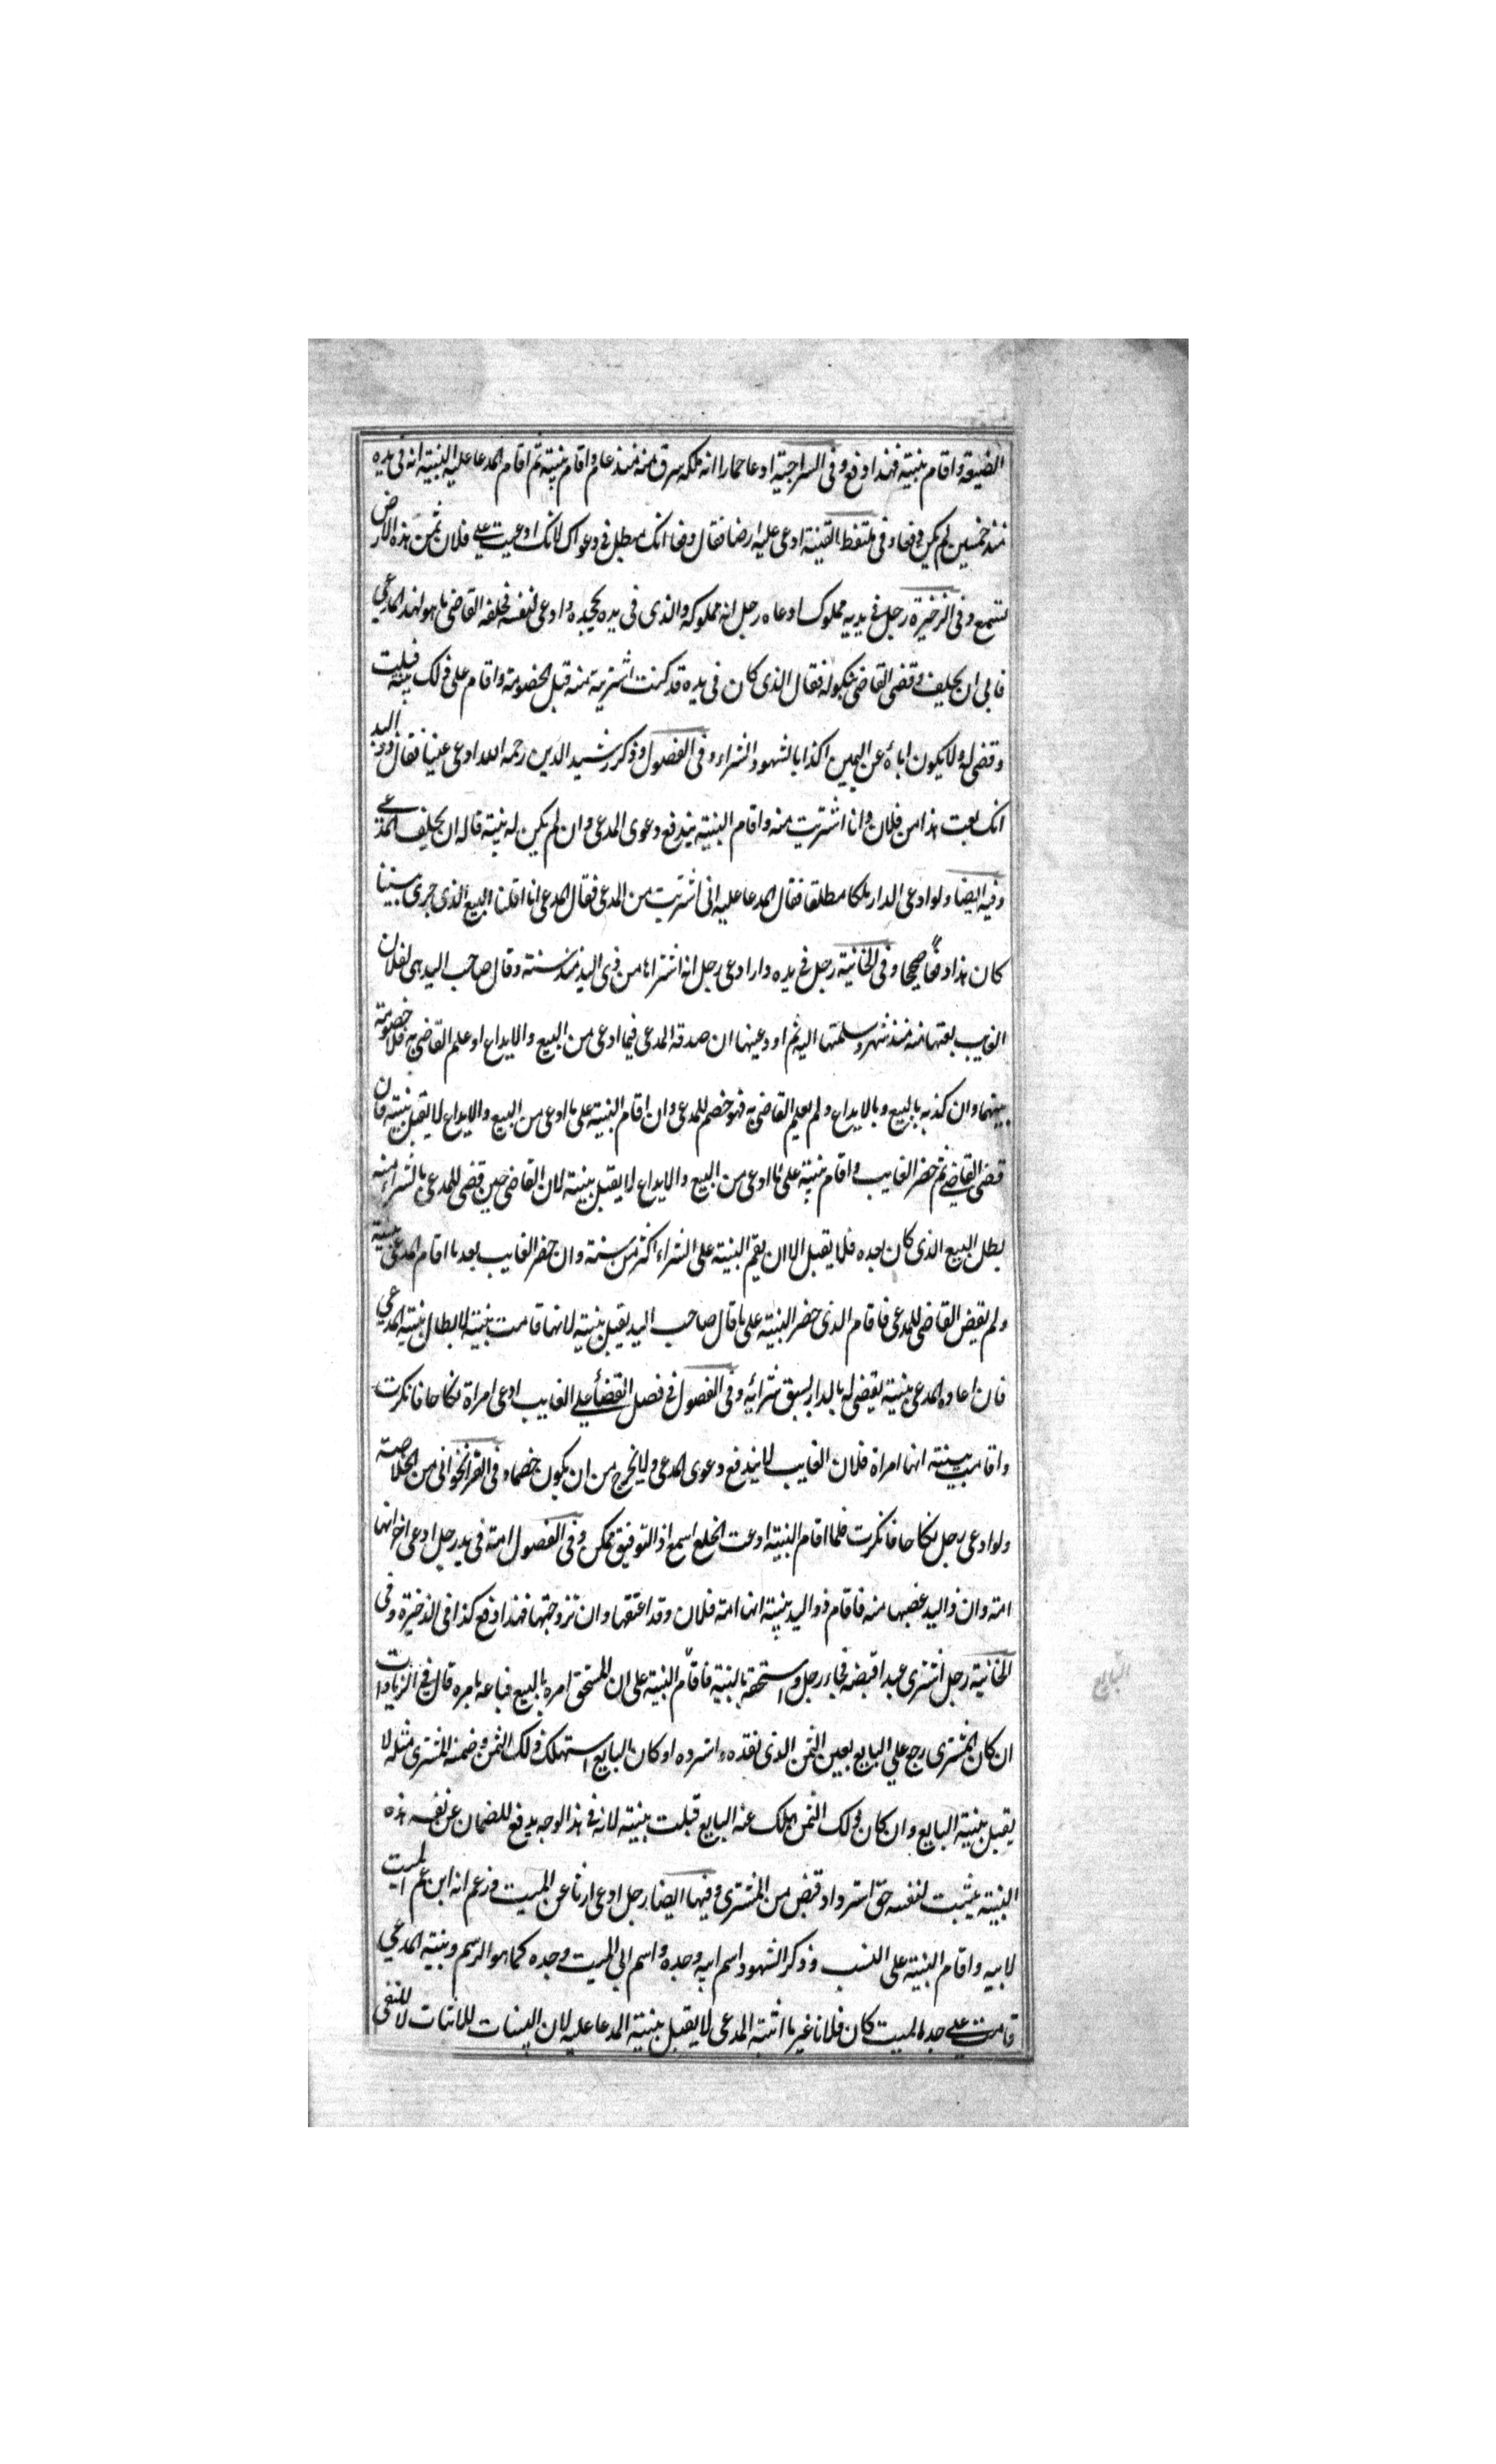 الضيعة واقام بنيته فهذا دفع وفى السراجية ادعا حمارا انه ملكه سرق منه منذ عام واقام بنيته ثم اقام المدعا عليه البنيته انه فى يده
منذ خمسين لم يكن دفعا وفى ملتقط القنية ادعى عليه ارضا فقال دفعا انك مبطل فى دعواك لانك ادعيت على فلان ثمن هذه الارض
تسمع وفى الذخيرة رجل فى يديه مملوك ادعاه رجل انه مملوكه والذى فى يده يجحده وادعى لنفسه فحلفه القاضى ما هو لهذا المدعى
فابى ان يحلف وقضى القاضى بنكوله فقال الذى كان فى يده قد كنت اشتريته منه قبل الخصومة واقام على ذلك بينة قبلت
وقضى له ولا يكون اباؤه عن اليمين اكذابا لشهود الشراء وفى الفصول وذكر رشيد الدين رحمه الله ادعى عينا فقال ذو اليد
انك بعت هذا من فلان وانا اشتريت منه واقام البنيته يندفع دعوى المدعى وان لم يكن له بنيته قاله ان يحلف المدعى
وفيه ايضا ولو ادعى الدار ملكا مطلقا فقال المدعا عليه انى اشتريت من المدعى فقال المدعى انا اقلنا البيع الذى جرى بيننا
كان هذا دفعا صحيحا وفى الخانية رجل فى يده دار ادعى رجل انه اشتراها من ذى اليد منذ سنته وقال صاحب اليد هى لفلان
الغايب بعتها منه منذ شهر وسلمتها اليه ثم اودعينها ان صدقه المدعى فيما ادعى من البيع والايداع او علم القاضى به فلا خصومة
بينهما وان كذبه بالبيع وبالايداع ولم يعلم القاضى به فهو خصم للمدعى وان اقام البنيته على ما ادعى من البيع والايداع لا يقبل بنيته فان
قضى القاضى ثم حضر الغايب واقام بنيته على ما ادعى من البيع والايداع لا يقبل بنيته لان القاضى حين قضى للمدعى بالشراء منه
بطل البيع الذى كان بعده فلا يقبل الا ان يقم البنيته على الشراء اكثر من سنته وان حضر الغايب بعد ما اقام المدعى بنيته
ولم يقض القاضى للمدعى فاقام الذى حضر البنيته على ما قال صاحب اليد يقبل بنيته لانها قامت بنيته لابطال بنيته المدعى
فان اعاده المدعى بنيته يقضى له بالدار لسبق شرائه وفى الفصول فى فصل القضأ على الغايب ادعى امراة نكاحا فانكرت
واقامت بينته انها امراة فلان الغايب لا يندفع دعوى المدعى ولا يخرج من ان يكون خصما وفى القراخوانى من الخلاصة
ولو ادعى رجل نكاحا فانكرت فلما اقام البنيته ادعت الخلع اسمع اذ التوفيق ممكن وفى الفصول امته فى يد رجل ادعى اخر انها
امته وان ذو اليد غصبها منه فاقام ذو اليد بنيته انها امته فلان وقد اعتقها وان تزوجتها فهذا دفع كذا فى الذخيرة وفى
الخانية رجل اشترى عبدا قبضه فجاء رجل واستحقه بالبنيته فاقام البنيته على ان المستحق امره بالبيع فباعه بامره قال فى الزيادات
ان كان المشترى رجع على البايع بعين الثمن الذى نقده واسترده او كان البايع استهلك ذلك الثمن وضمنه المشترى مثله لا
يقبل بنيته البايع وان كان ذلك الثمن هلك عند البايع قبلت بنيته لانه فى هذا الوجه يدفع للضمان عن نفسه هذه
البنيته يثبت لنفسه حق استرداد قبض من المشترى وفيها ايضا رجل ادعى ارثا عن الميت وزعم انه ابن عم الميت
لابيه واقام البنيته على النسب وذكر الشهود اسم ابيه وجده واسم ابى الميت وجده كما هو الرسم وبنيته المدعى
قامت على جد الميت كان فلانا غير ما اثبته المدعى لا يقبل بنيته المدعا عليه لان البينات للاثبات لا للنفى